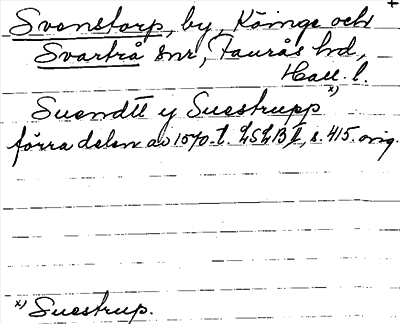 Svenstorp, by, Köinge och
Svartrå snr, Faurås hd,
Hall. l.
x)
Suendtt y Suestrupp
förra delen av 1570-t. LSLB I, s. 415. orig.
x) Suestrup.